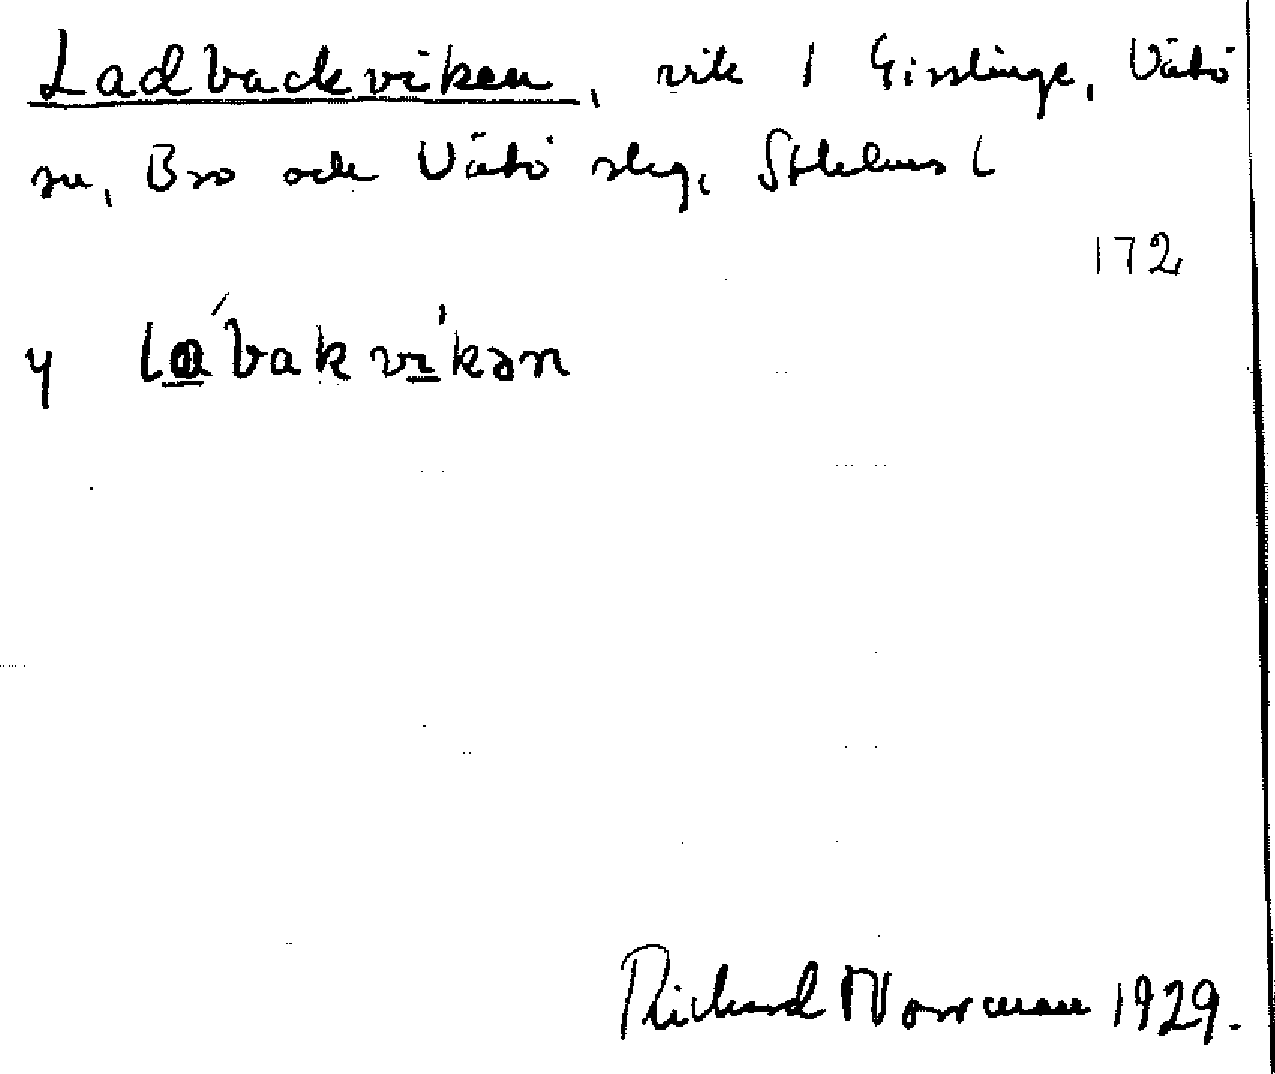 Ladbackviken, vik i Gisslinge, Vätö
sn, Bro och Vätö skg, Sthlms l
172
y la´bakvi'kən
Richard Norrman 1929.